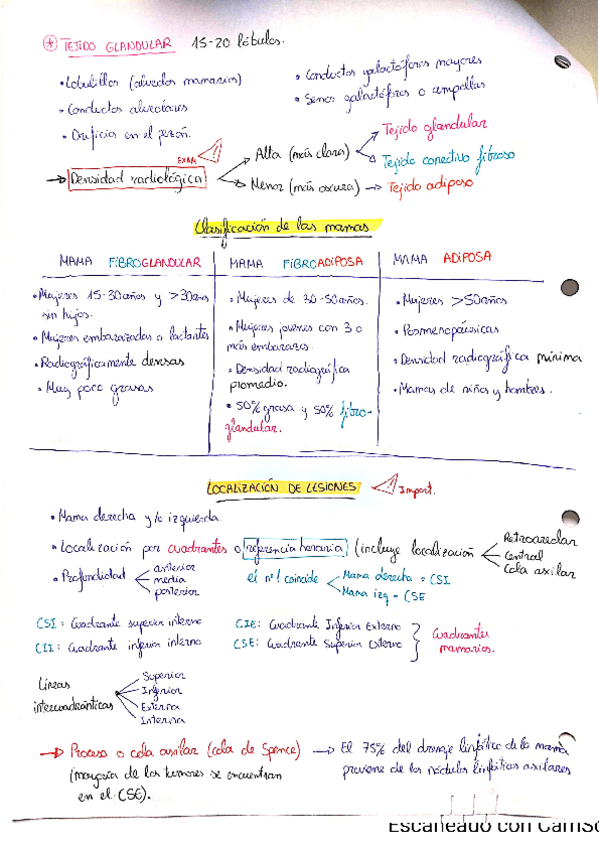 * TEJIDO GLANDULAR 15-20 lóbulos.
• Lobulillos (alveolos mamarios)
• Conductos alveolares
• Orificio en el pezón.
• Conductos galactóforos mayores
• Senos galactóforos o ampollas
EXAM
→ Densidad radiológica
Alta (más clara)
Tejido glandular
Tejido conectivo fibroso
Menor (más oscura) → Tejido adiposo
Clasificación de las mamas
MAMA FIBROGLANDULAR
• Mujeres 15-30 años y >30 años
sin hijos.
• Mujeres embarazadas o lactantes
• Radiográficamente densas
• Muy poco grasas
MAMA FIBROADIPOSA
• Mujeres de 30-50 años.
• Mujeres jóvenes con 3 o
más embarazos.
• Densidad radiográfica
promedio.
• 50% grasa y 50% fibro-
glandular.
MAMA ADIPOSA
• Mujeres >50 años
• Posmenopáusicas
• Densidad radiográfica mínima
• Mamas de niños y hombres.
LOCALIZACIÓN DE LESIONES
Import.
• Mama derecha y/o izquierda.
• Localización por cuadrantes o referencia horaria (incluye localización
Retroareolar
Central
Cola axilar
• Profundidad
anterior
media
posterior
el nº1 coincide
Mama derecha = CSI
Mama izq = CSE
CSI: Cuadrante superior interno
CII: Cuadrante inferior interno
CIE: Cuadrante Inferior Externo
CSE: Cuadrante Superior Externo
Cuadrantes
mamarios.
Líneas
intercuadránticas
Superior
Inferior
Externa
Interna
→ Proceso o cola axilar (cola de Spence)
(mayoría de los tumores se encuentran
en el CSE).
→ El 75% del drenaje linfático de la mama
proviene de los nódulos linfáticos axilares
Escaneado con CamSc